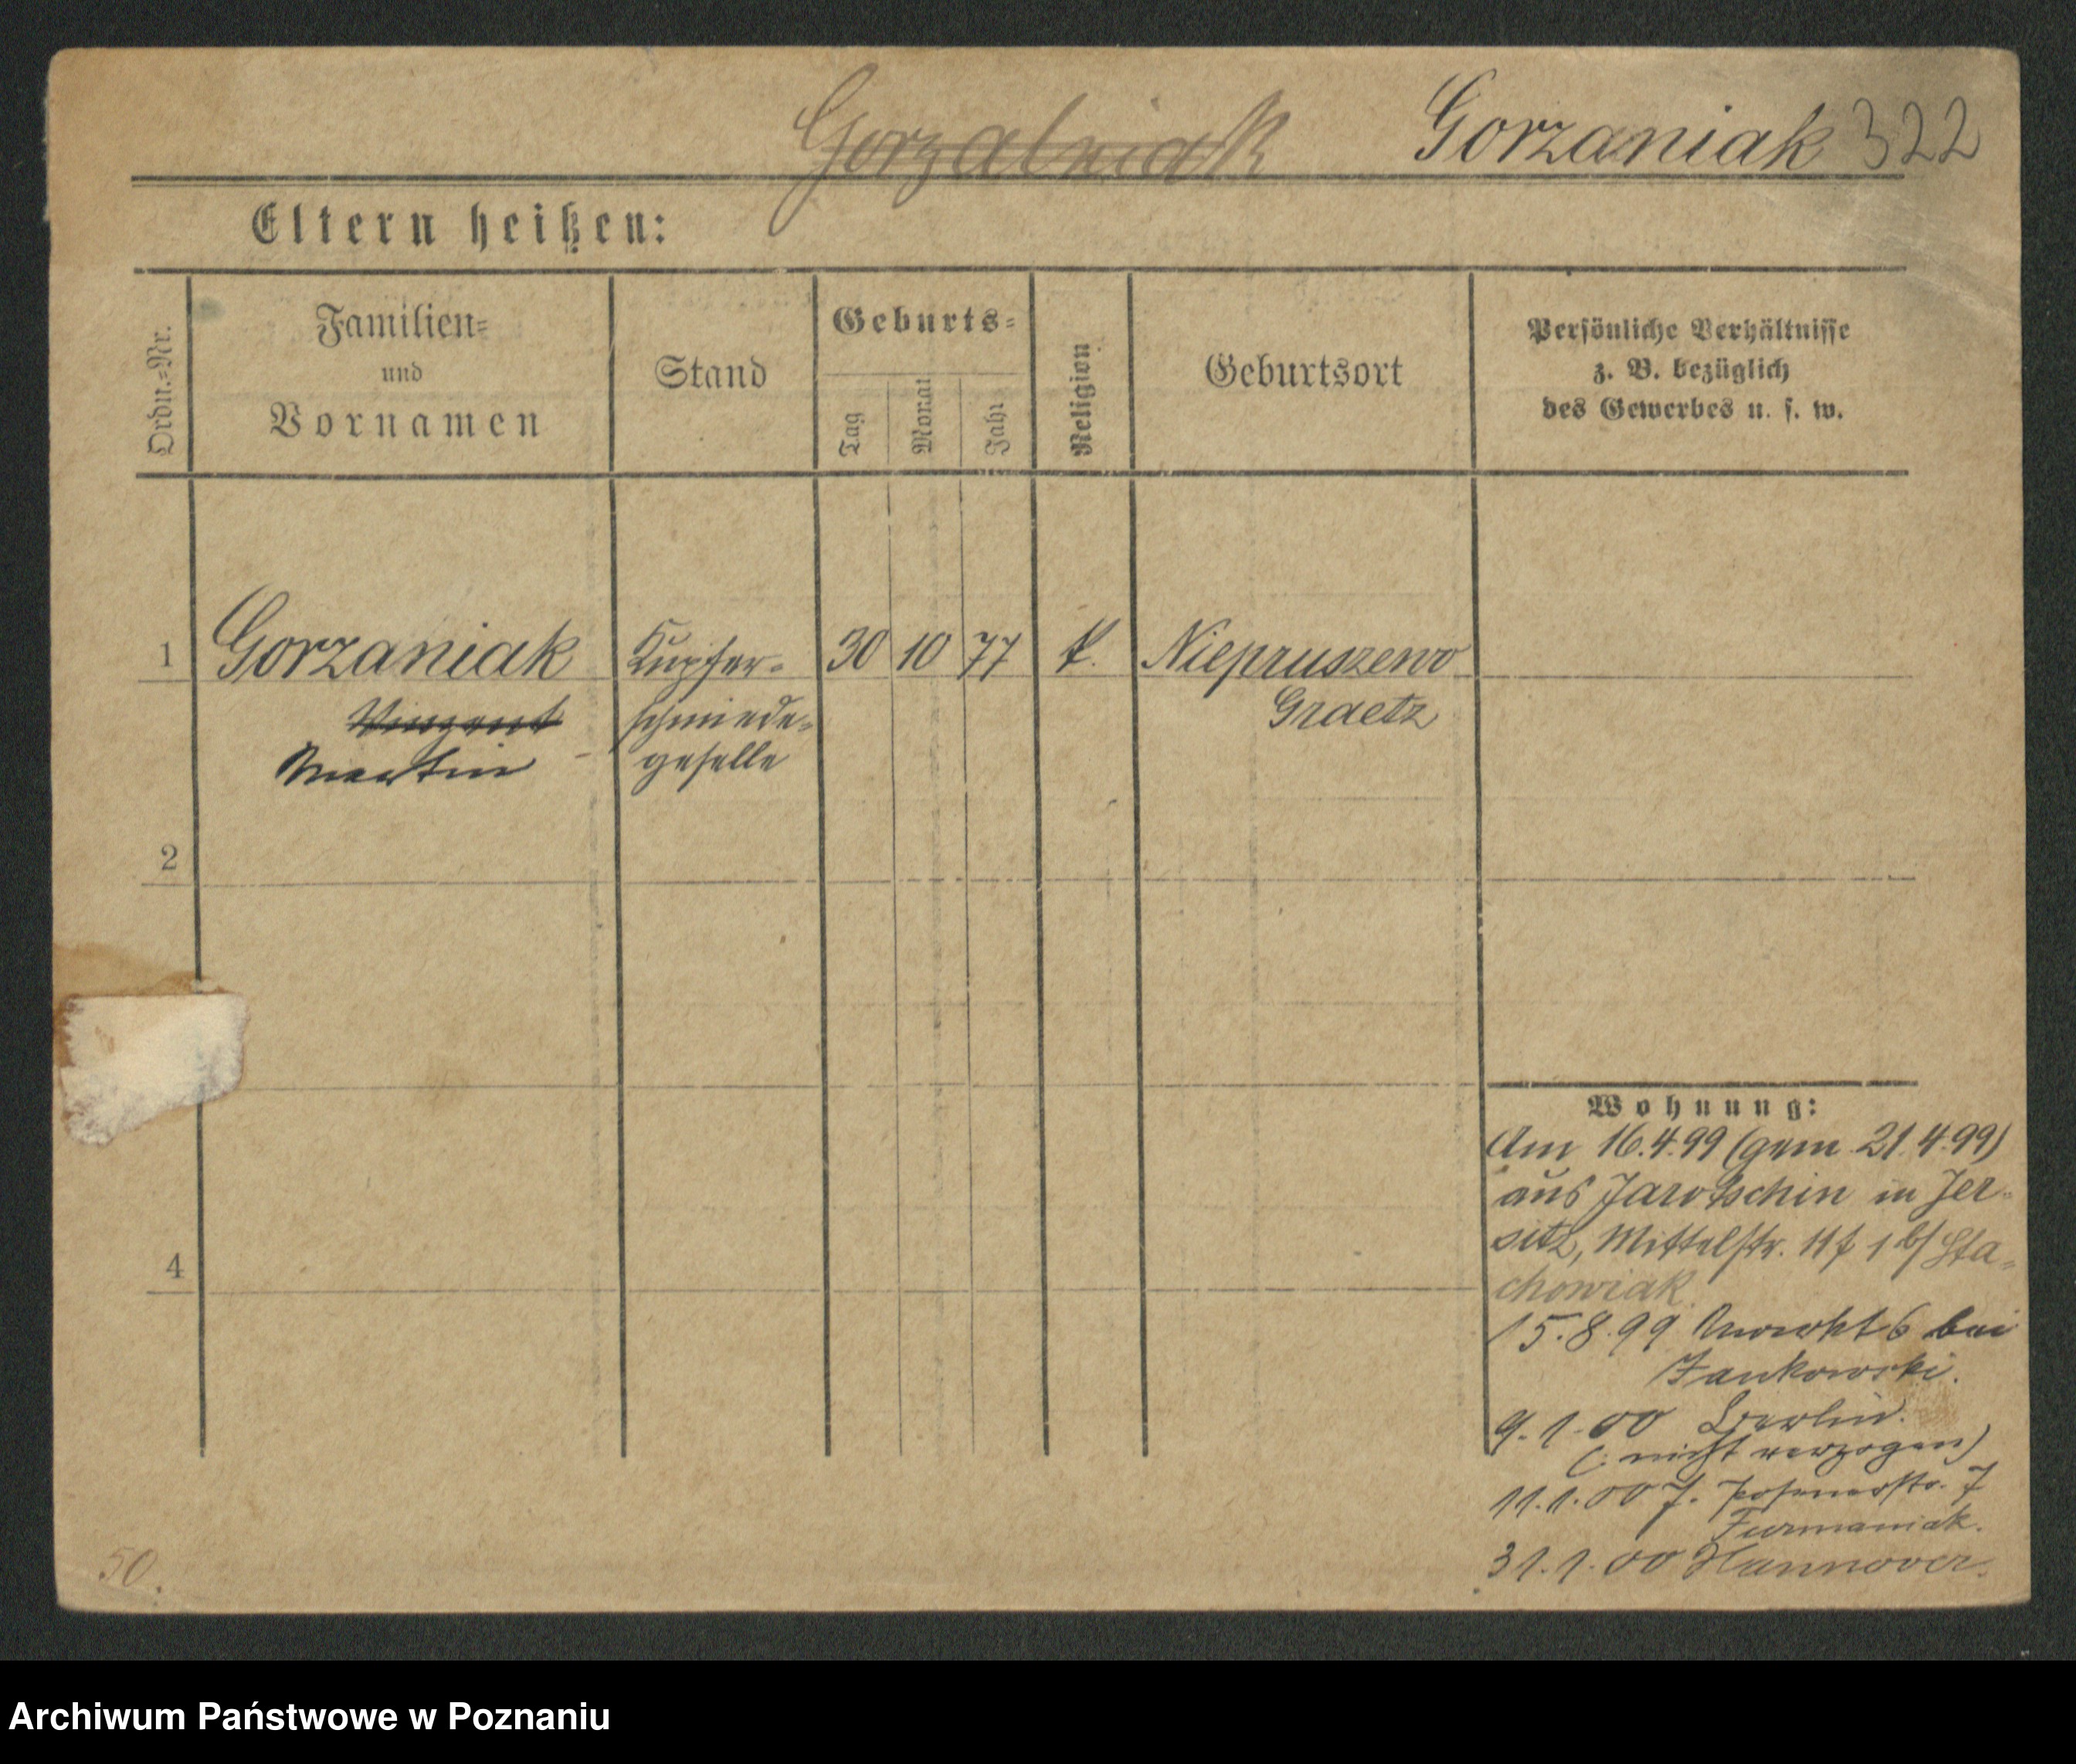 Gorzalniak Gorzaniak 322
Eltern heißen:
Ordn.-Nr.
Familien-
und
Vornamen
Stand
Geburts-
Tag
Monat
Jahr
Religion
Geburtsort
Persönliche Verhältnisse
z. B. bezüglich
des Gewerbes u. s. w.
1 Gorzaniak Kupfer- 30 10 77 k. Niepruszewo
Vinzent schmiede- Graetz
Martin geselle
2
4
Wohnung:
Am 16.4.99 (gem 21.4.99)
aus Jarotschin in Jer-
sitz, Mittelstr. 11 1 b/ Sta-
chowiak
15.8.99 6 bei
Jankowski.
9.1.00 Berlin.
(: nicht verzogen)
11.1.00 J. Posenerstr. 7
Furmaniak.
31.1.00 Hannover.
50.
Archiwum Państwowe w Poznaniu